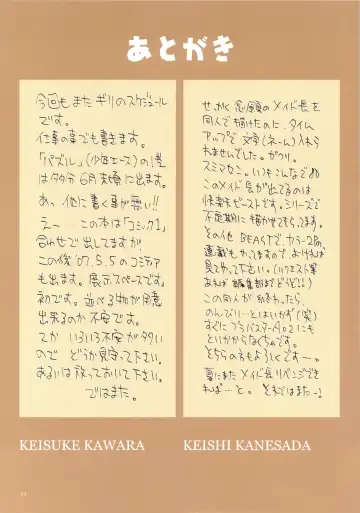 あとがき
今回もまたギリのスケジュール
です。
仕事の事でも書きます。
「パズル」(少年エース)の1巻
は多分6月末頃に出ます。
あっ、他に書く事が無い!!
えー…この本は「コミック1」
合わせで出してますが
この後'07.5.5のコミティア
も出ます。展示スペースです。
初です。並べる物が用意
出来るのか不安です。
てかいろいろ不安が多い
のでどうか見守って下さい。
あるいは放っておいて下さい。
ではまた。
KEISUKE KAWARA
せっかく念願のメイド長を
同人で描けたのに、タイム
アップで文字(ネーム)入れら
れませんでした。がっくり。
スミマセン。いつもこんなで
このメイド長が出てるのは
快楽天ビーストです。シリーズで
不定期に描かせてもらってます。
その他BEASTで、カラー2P
連載もやってますので、よければ
見てやって下さい。
この同人が終わったら
のんびり…とはいかず(笑)
すぐに
とりかからなくちゃです。
そちらの方もよろしくです〜。
夏にまたメイド長リベンジでき
れば…と。それではまた〜
KEISHI KANESADA